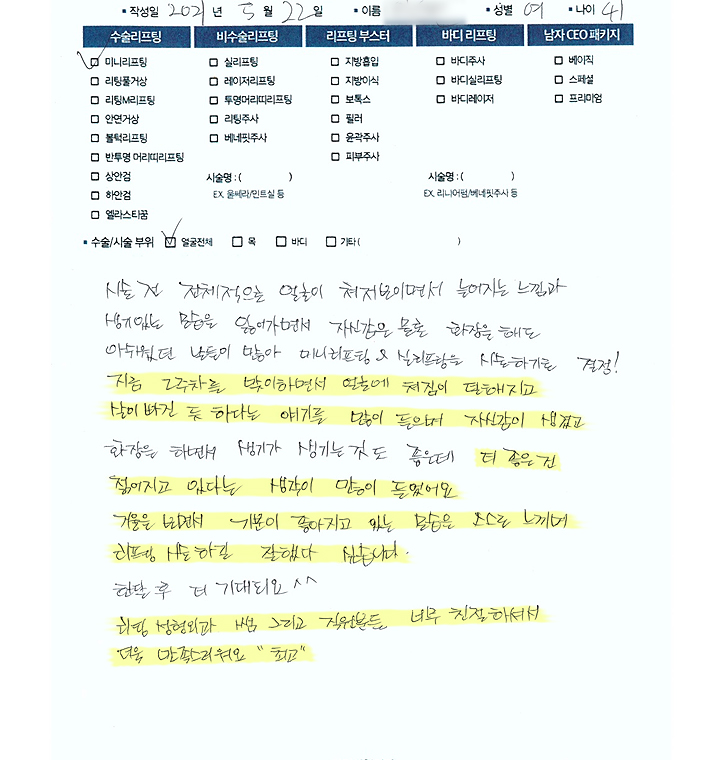 ▪ 작성일 2021 년 5 월 22 일 ▪ 이름 ▪ 성별 여 ▪ 나이 41
수술리프팅 비수술리프팅 리프팅 부스터 바디 리프팅 남자 CEO 패키지
미니리프팅 실리프팅 지방흡입 바디주사 베이직
리팅풀거상 레이저리프팅 지방이식 바디실리프팅 스페셜
리팅M리프팅 투명머리띠리프팅 보톡스 바디레이저 프리미엄
안면거상 리팅주사 필러
볼턱리프팅 베네핏주사 윤곽주사
반투명 머리띠리프팅 피부주사
상안검 시술명 : ( ) 시술명 : ( )
하안검 EX. 울쎄라/민트실 등 EX. 리니어펌/베네핏주사 등
엘라스티꿈
▪ 수술/시술 부위 얼굴전체 목 바디 기타 ( )
시술 전 전체적으로 얼굴이 처져보이면서 늙어지는 느낌과
생기있는 모습을 잃어가면서 자신감은 물론 화장을 해도
아쉬웠던 날들이 많아 미니리프팅 & 실리프팅을 시술하기로 결정!
지금 2주차를 맞이하면서 얼굴에 처짐이 탄탄해지고
살이 빠진 듯 하다는 얘기를 많이 들으며 자신감이 생겼고
화장을 하면서 생기가 생기는 것도 좋은데 더 좋은건
젊어지고 있다는 생각이 많이 들었어요
거울을 보면서 기분이 좋아지고 있는 모습을 스스로 느끼며
리프팅 시술하길 잘했다 싶습니다.
한달 후 더 기대되요 ^^
리팅 성형외과 쌤 그리고 직원분들 너무 친절하셔서
더욱 만족스러워요 "최고"